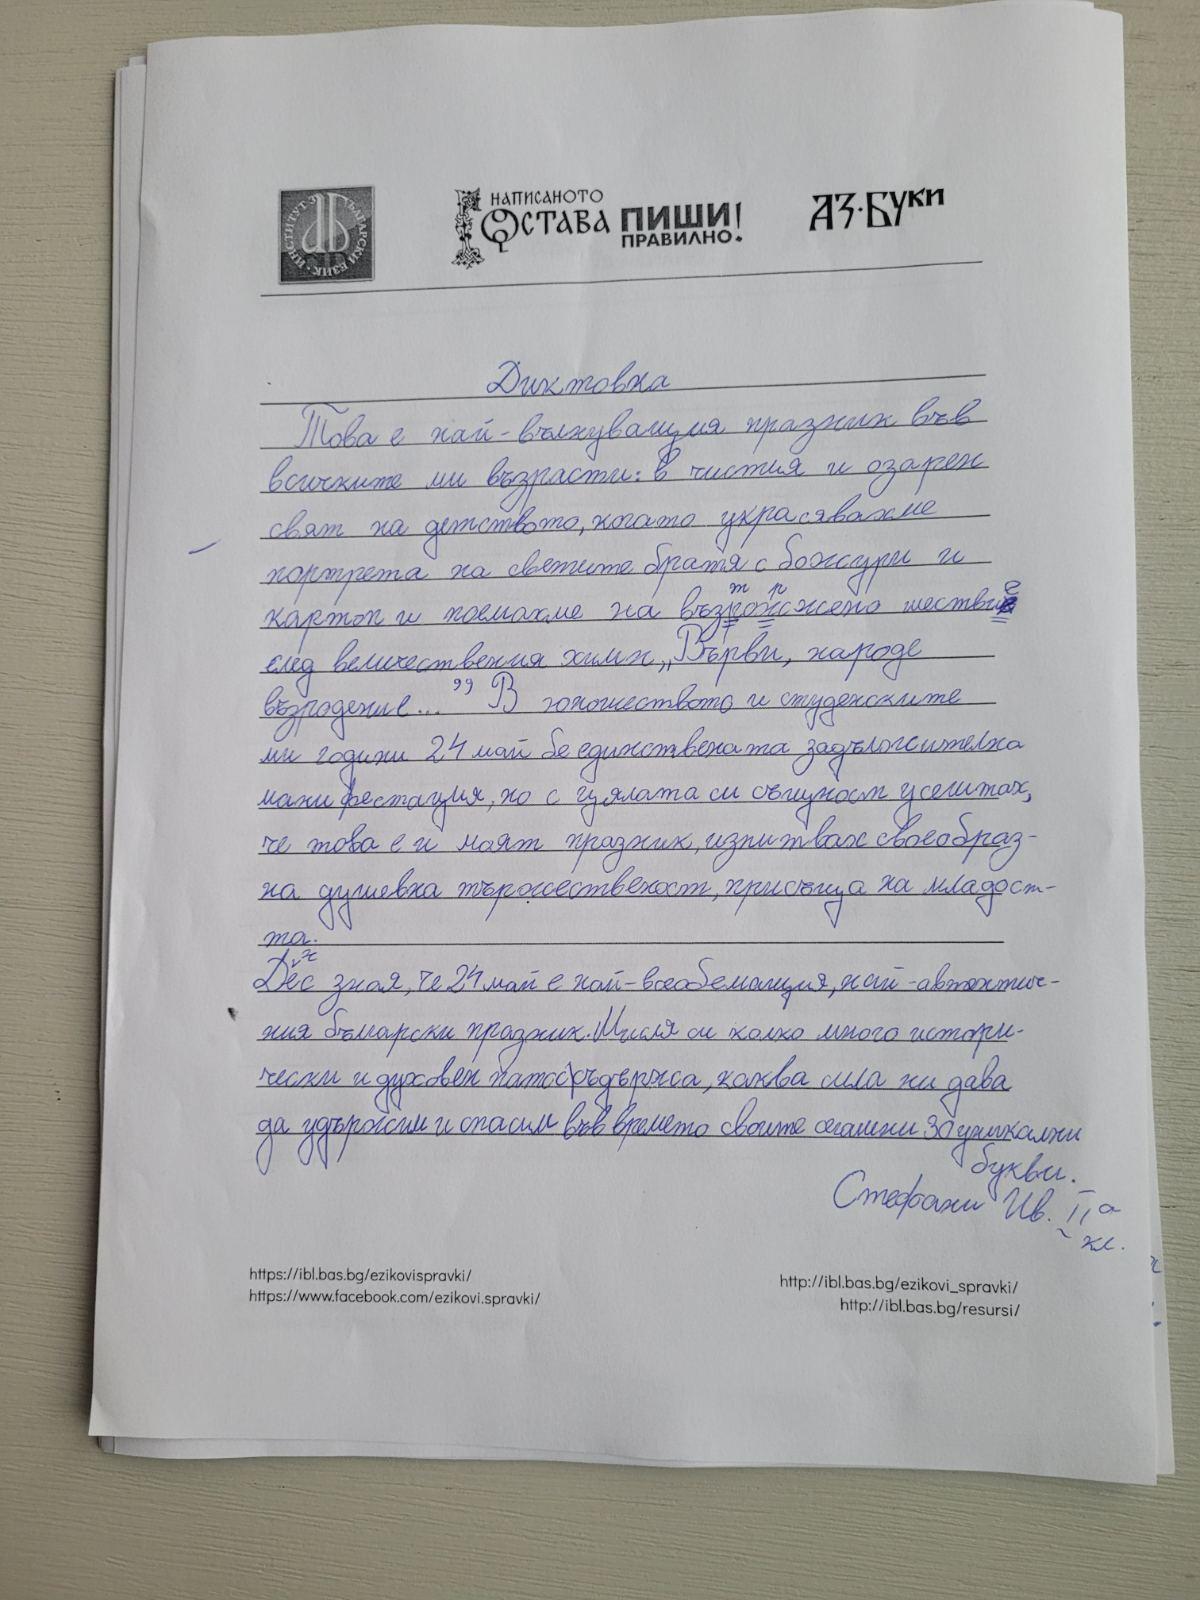 ИНСТИТУТ ЗА БЪЛГАРСКИ ЕЗИК
НАПИСАНОТО
ОСТАВА ПИШИ
ПРАВИЛНО!
АЗ·БУКИ
Диктовка
Това е най-вълнуващия празник във
всичките ми възрасти: в чистия и озарен
свят на детството, когато украсявахме
портрета на светите братя с божури и
картон и поемахме на шествие
след величествения химн „Върви, народе
възродение..." В юношеството и студенските
ми години 24 май бе единствената задължителна
манифестация, но с цялата си същност усещах,
че това е и моят празник, изпитвах своеобраз-
на душевна тържественост, присъща на младост-
та.
Днес зная, че 24 май е най-всеобемащия, най-автентич-
ния български празник. Мисля си колко много истори-
чески и духовен патос съдържа, каква сила ни дава
да удържим и спасим във времето своите сегашни за уникални
букви.
Стефани Ив. IIа
кл.
https://ibl.bas.bg/ezikovispravki/
https://www.facebook.com/ezikovi.spravki/
http://ibl.bas.bg/ezikovi_spravki/
http://ibl.bas.bg/resursi/